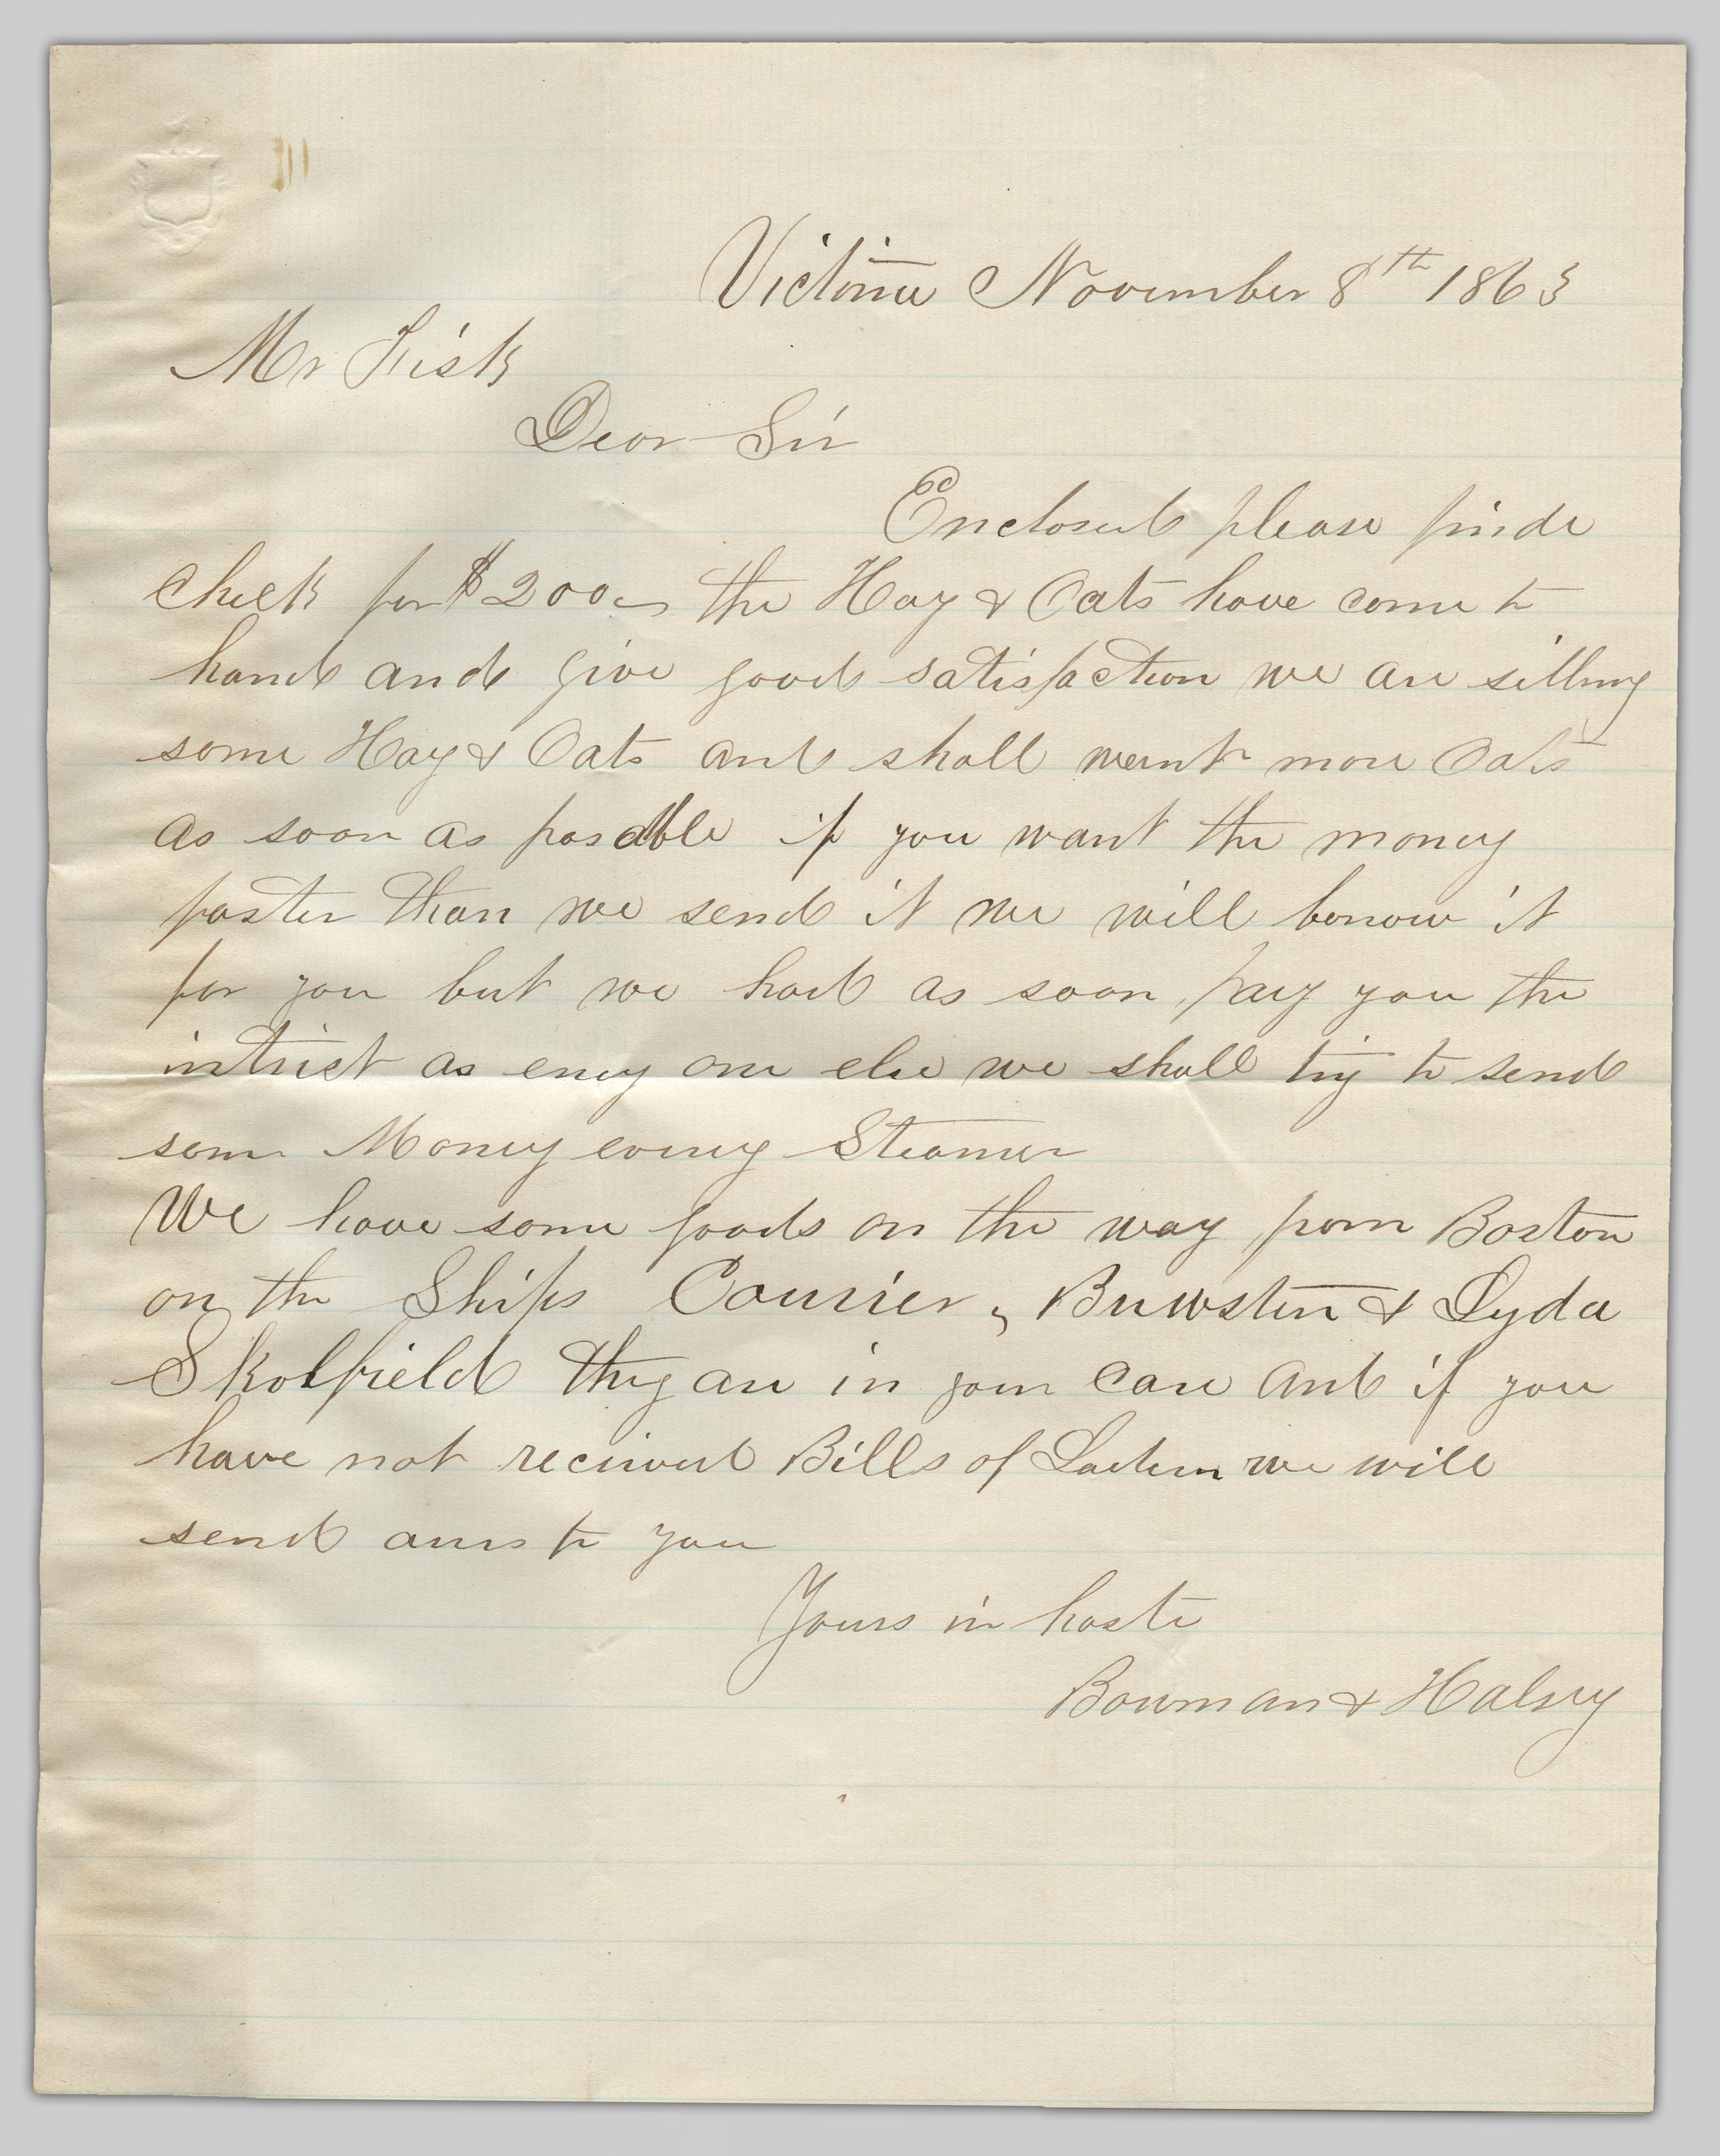 Victoria November 8th 1863
Mr Fisk
Dear Sir
Enclosed please finde
Check for $200 the Hay & Oats have come to
hand and give good satisfaction we are selling
some Hay & Oats and shall want more Oats
as soon as posable if you want the money
faster than we send it we will borrow it
for you but we had as soon pay you the
intrest as eney one else we shall try to send
some Money every Steamer
We have some goods on the way from Boston
on the Ships Courrier, Brewster & Lyda
Skolfield they are in your care and if you
have not reciived Bills of Laden we will
send ours to you
Yours in haste
Bowman & Halsey